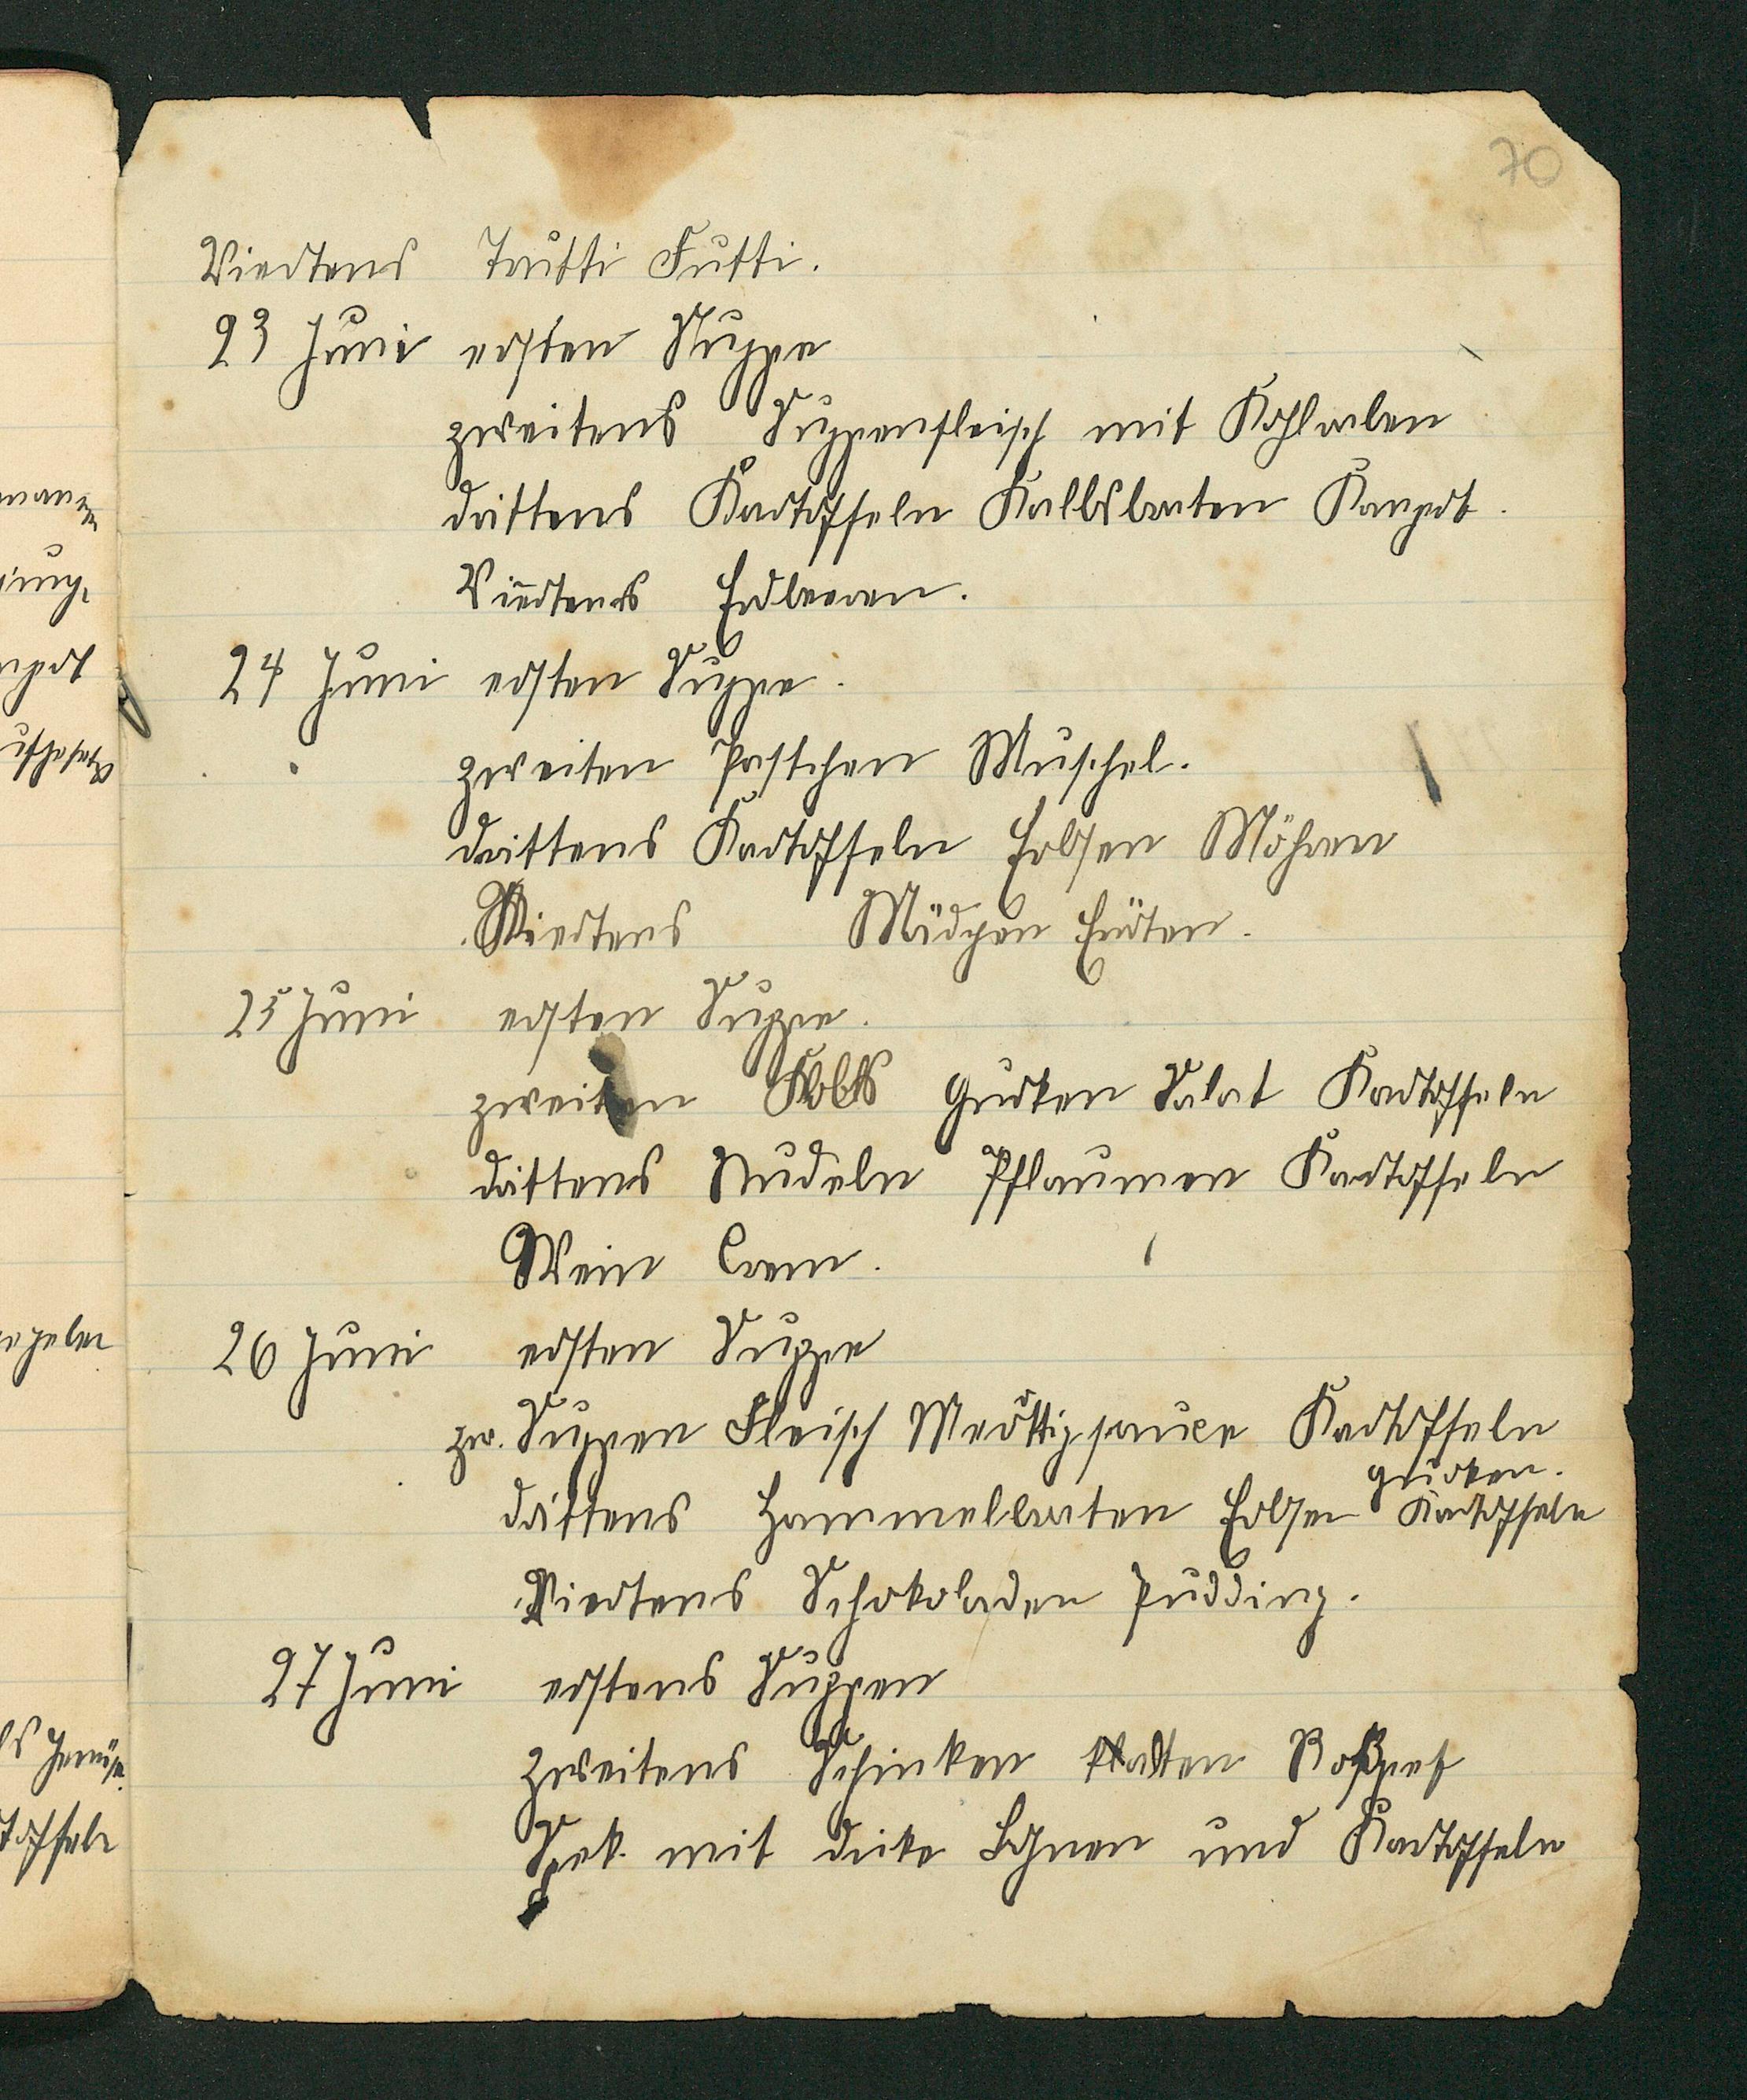 70
Viertens Trutti Futti.
23 Juni ersten Suppe
zweitens Suppenfleisch mit Kohlraben
drittens Kartoffeln Kalbsbraten Kompot.
Viertens Erdbeeren.
24 Juni ersten Suppe.
zweiten Pastchen Muschel.
drittens Kartoffeln Erbsen Möhren
Viertens Mädgen
25 Juni ersten Suppe.
zweiten Gurken Salat Kartoffeln
drittens Nudeln Pflaumen Kartoffeln
Wein Crem.
26 Juni ersten Suppe
zw. Suppen Fleisch Kartoffeln
Gurken.
drittens Hammelbraten Erbsen Kartoffeln
Viertens Schokoladen Pudding.
27 Juni erstens Suppen
zweitens Schinken
Spek mit dicke Bohnen und Kartoffeln